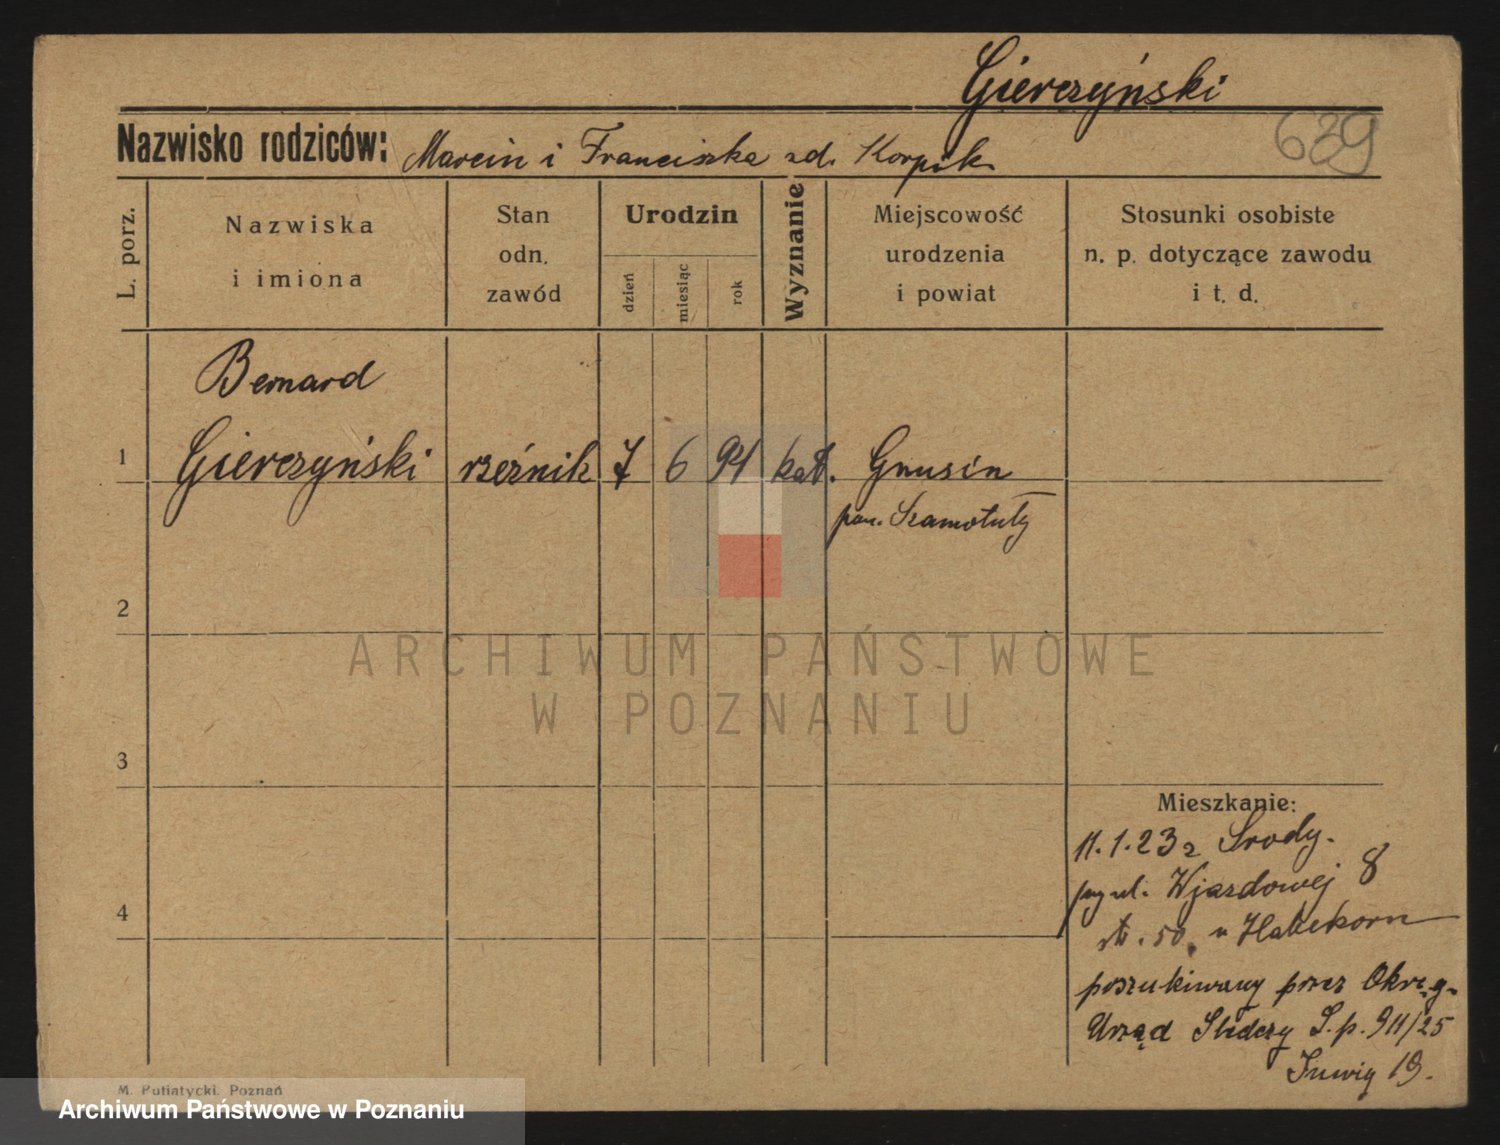 Gierczyński
639
Nazwisko rodziców: Marcin i Franciszka zd. Korpik
L. porz.
Nazwiska
i imiona
Stan
odn.
zawód
Urodzin
dzień
miesiąc
rok
Wyznanie
Miejscowość
urodzenia
i powiat
Stosunki osobiste
n. p. dotyczące zawodu
i t. d.
Bernard
1 Gierczyński rzeźnik 7 6 94 kat. Gnusin
pow. Szamotuły
2
3
4
Mieszkanie:
11.1.23 z Środy.
przy ul. Wjazdowej 8
str. 50. u Habekorn
poszukiwany przez Okręg.
Urząd Śledczy L.p. 911/25
19.
M. Putiatycki. Poznań
ARCHIWUM PAŃSTWOWE
W POZNANIU
Archiwum Państwowe w Poznaniu